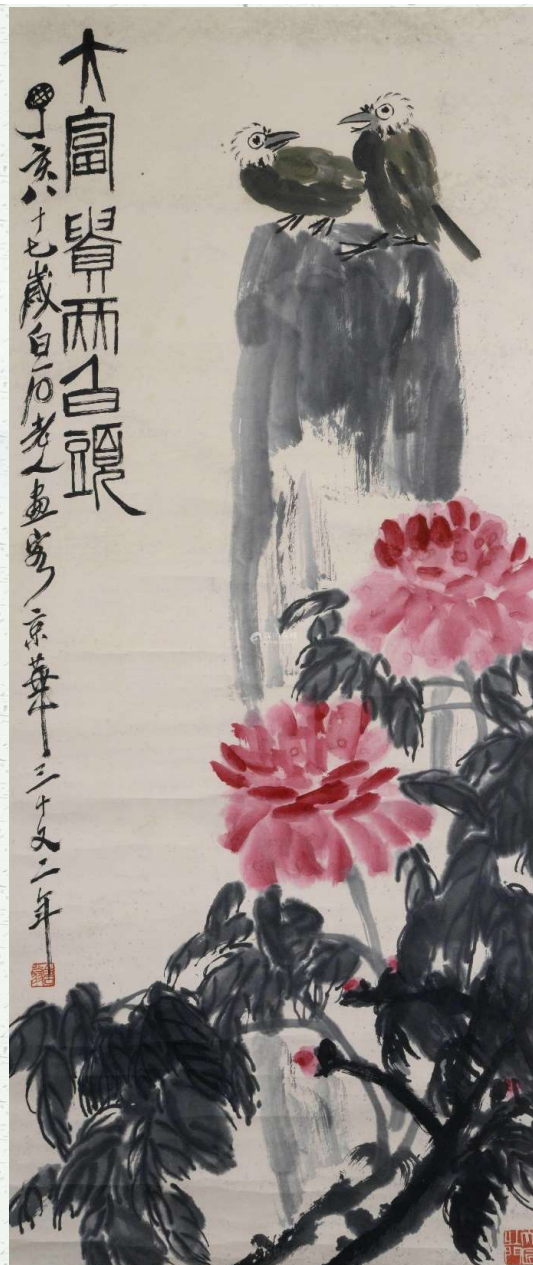 大富貴兩白頭
丁亥八十七歲白石老人畫客京華三十又二年